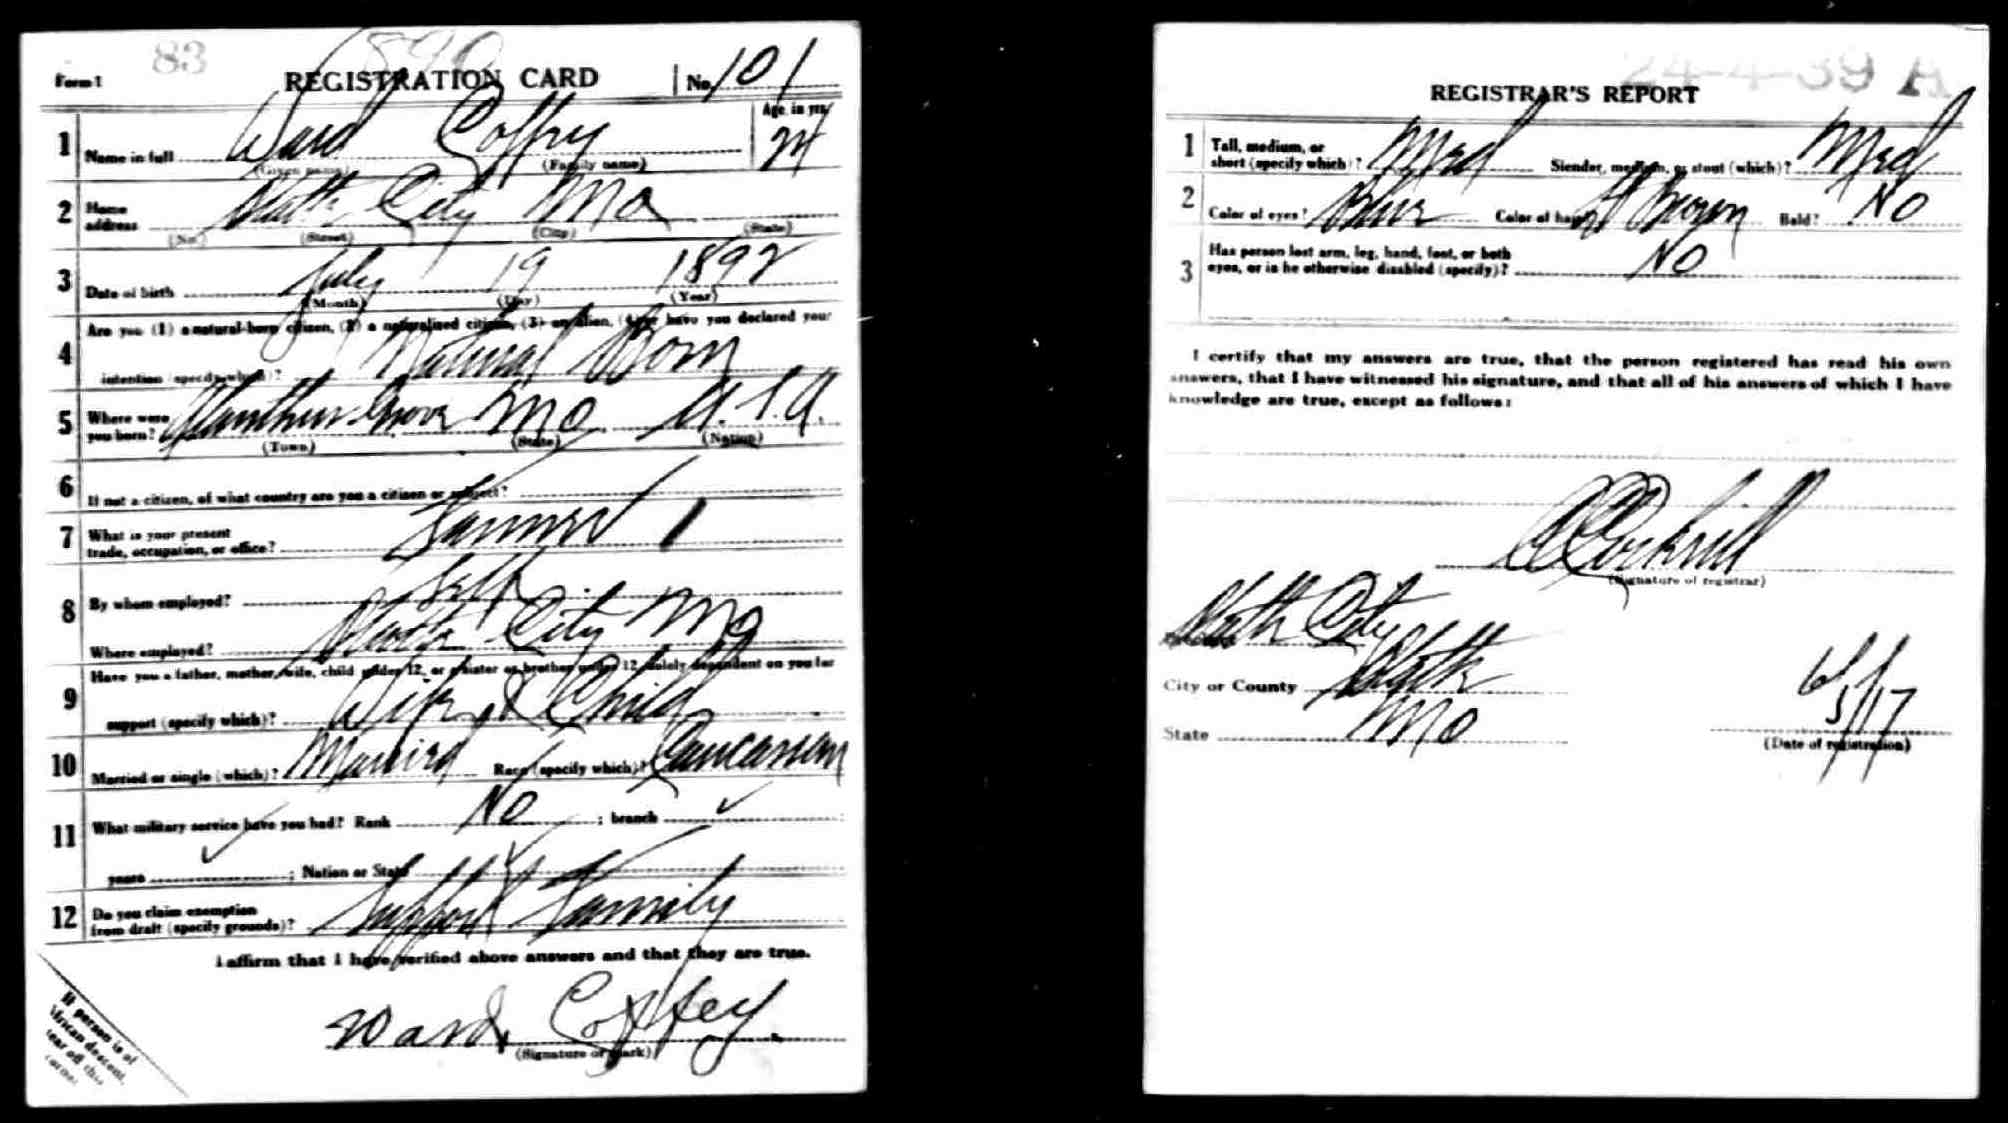 83
890
Form 1 REGISTRATION CARD No. 101
1 Name in full Ward Coffey Age, in yrs 24
(Given name) (Family name)
2 Home address Platte City Mo
(No.) (Street) (City) (State)
3 Date of birth July 19 1892
(Month) (Day) (Year)
4 Are you (1) a natural-born citizen, (2) a naturalized citizen, (3) an alien, (4) or have you declared your
intention (specify which)? Natural Born
5 Where were you born? Grove Mo U.S.A.
(Town) (State) (Nation)
6 If not a citizen, of what country are you a citizen or subject?
7 What is your present
trade, occupation, or office? Farmer 1
8 By whom employed? Self
Where employed? Platte City Mo
9 Have you a father, mother, wife, child under 12, or a sister or brother under 12, solely dependent on you for
support (specify which)? Wife & Child
10 Married or single (which)? Married Race (specify which)? Caucasian
11 What military service have you had? Rank No ; branch
years ; Nation or State
12 Do you claim exemption
from draft (specify grounds)? Support Family
I affirm that I have verified above answers and that they are true.
Ward Coffey
(Signature or mark)
If person is of
African descent,
tear off this
corner.
24-4-39 A
REGISTRAR'S REPORT
1 Tall, medium, or
short (specify which)? Med Slender, medium, or stout (which)? Med
2 Color of eyes? Blue Color of hair? Brown Bald? No
3 Has person lost arm, leg, hand, foot, or both
eyes, or is he otherwise disabled (specify)? No
I certify that my answers are true, that the person registered has read his own
answers, that I have witnessed his signature, and that all of his answers of which I have
knowledge are true, except as follows:
Cockrill
(Signature of registrar)
Precinct Platte City
City or County Platte
State Mo 6/5/17
(Date of registration)